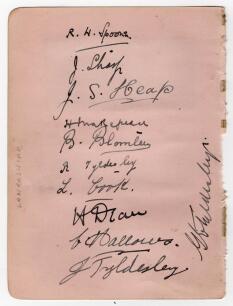 R. H. Spooner
J. Sharp
J. S. Heap
H Makepeace
B. Blomley
R Tyldesley
L. Cook.
H Dean
C Hallows.
J Tyldesley
LANCASHIRE